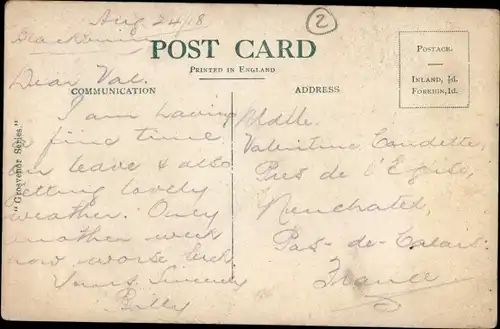 Aug 24/18
2
POST CARD
PRINTED IN ENGLAND
COMMUNICATION
ADDRESS
POSTAGE:
INLAND, ½d.
FOREIGN, 1d.
"Grosvenor Series."
Dear Val.
I am having
a fine time
on leave & also
getting lovely
weather. Only
another week
now worse luck
Yours Sincerely
Billy
Mdlle.
Valentine Caudette,
Près de l'Eglise,
Neuchatel,
Pas-de-Calais.
France